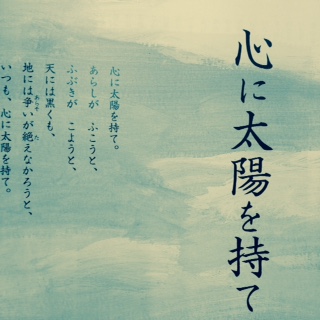 心に太陽を持て
心に太陽を持て。
あらしが ふこうと、
ふぶきが こようと、
天には黒くも、
地には争いが絶えなかろうと、
いつも、心に太陽を持て。